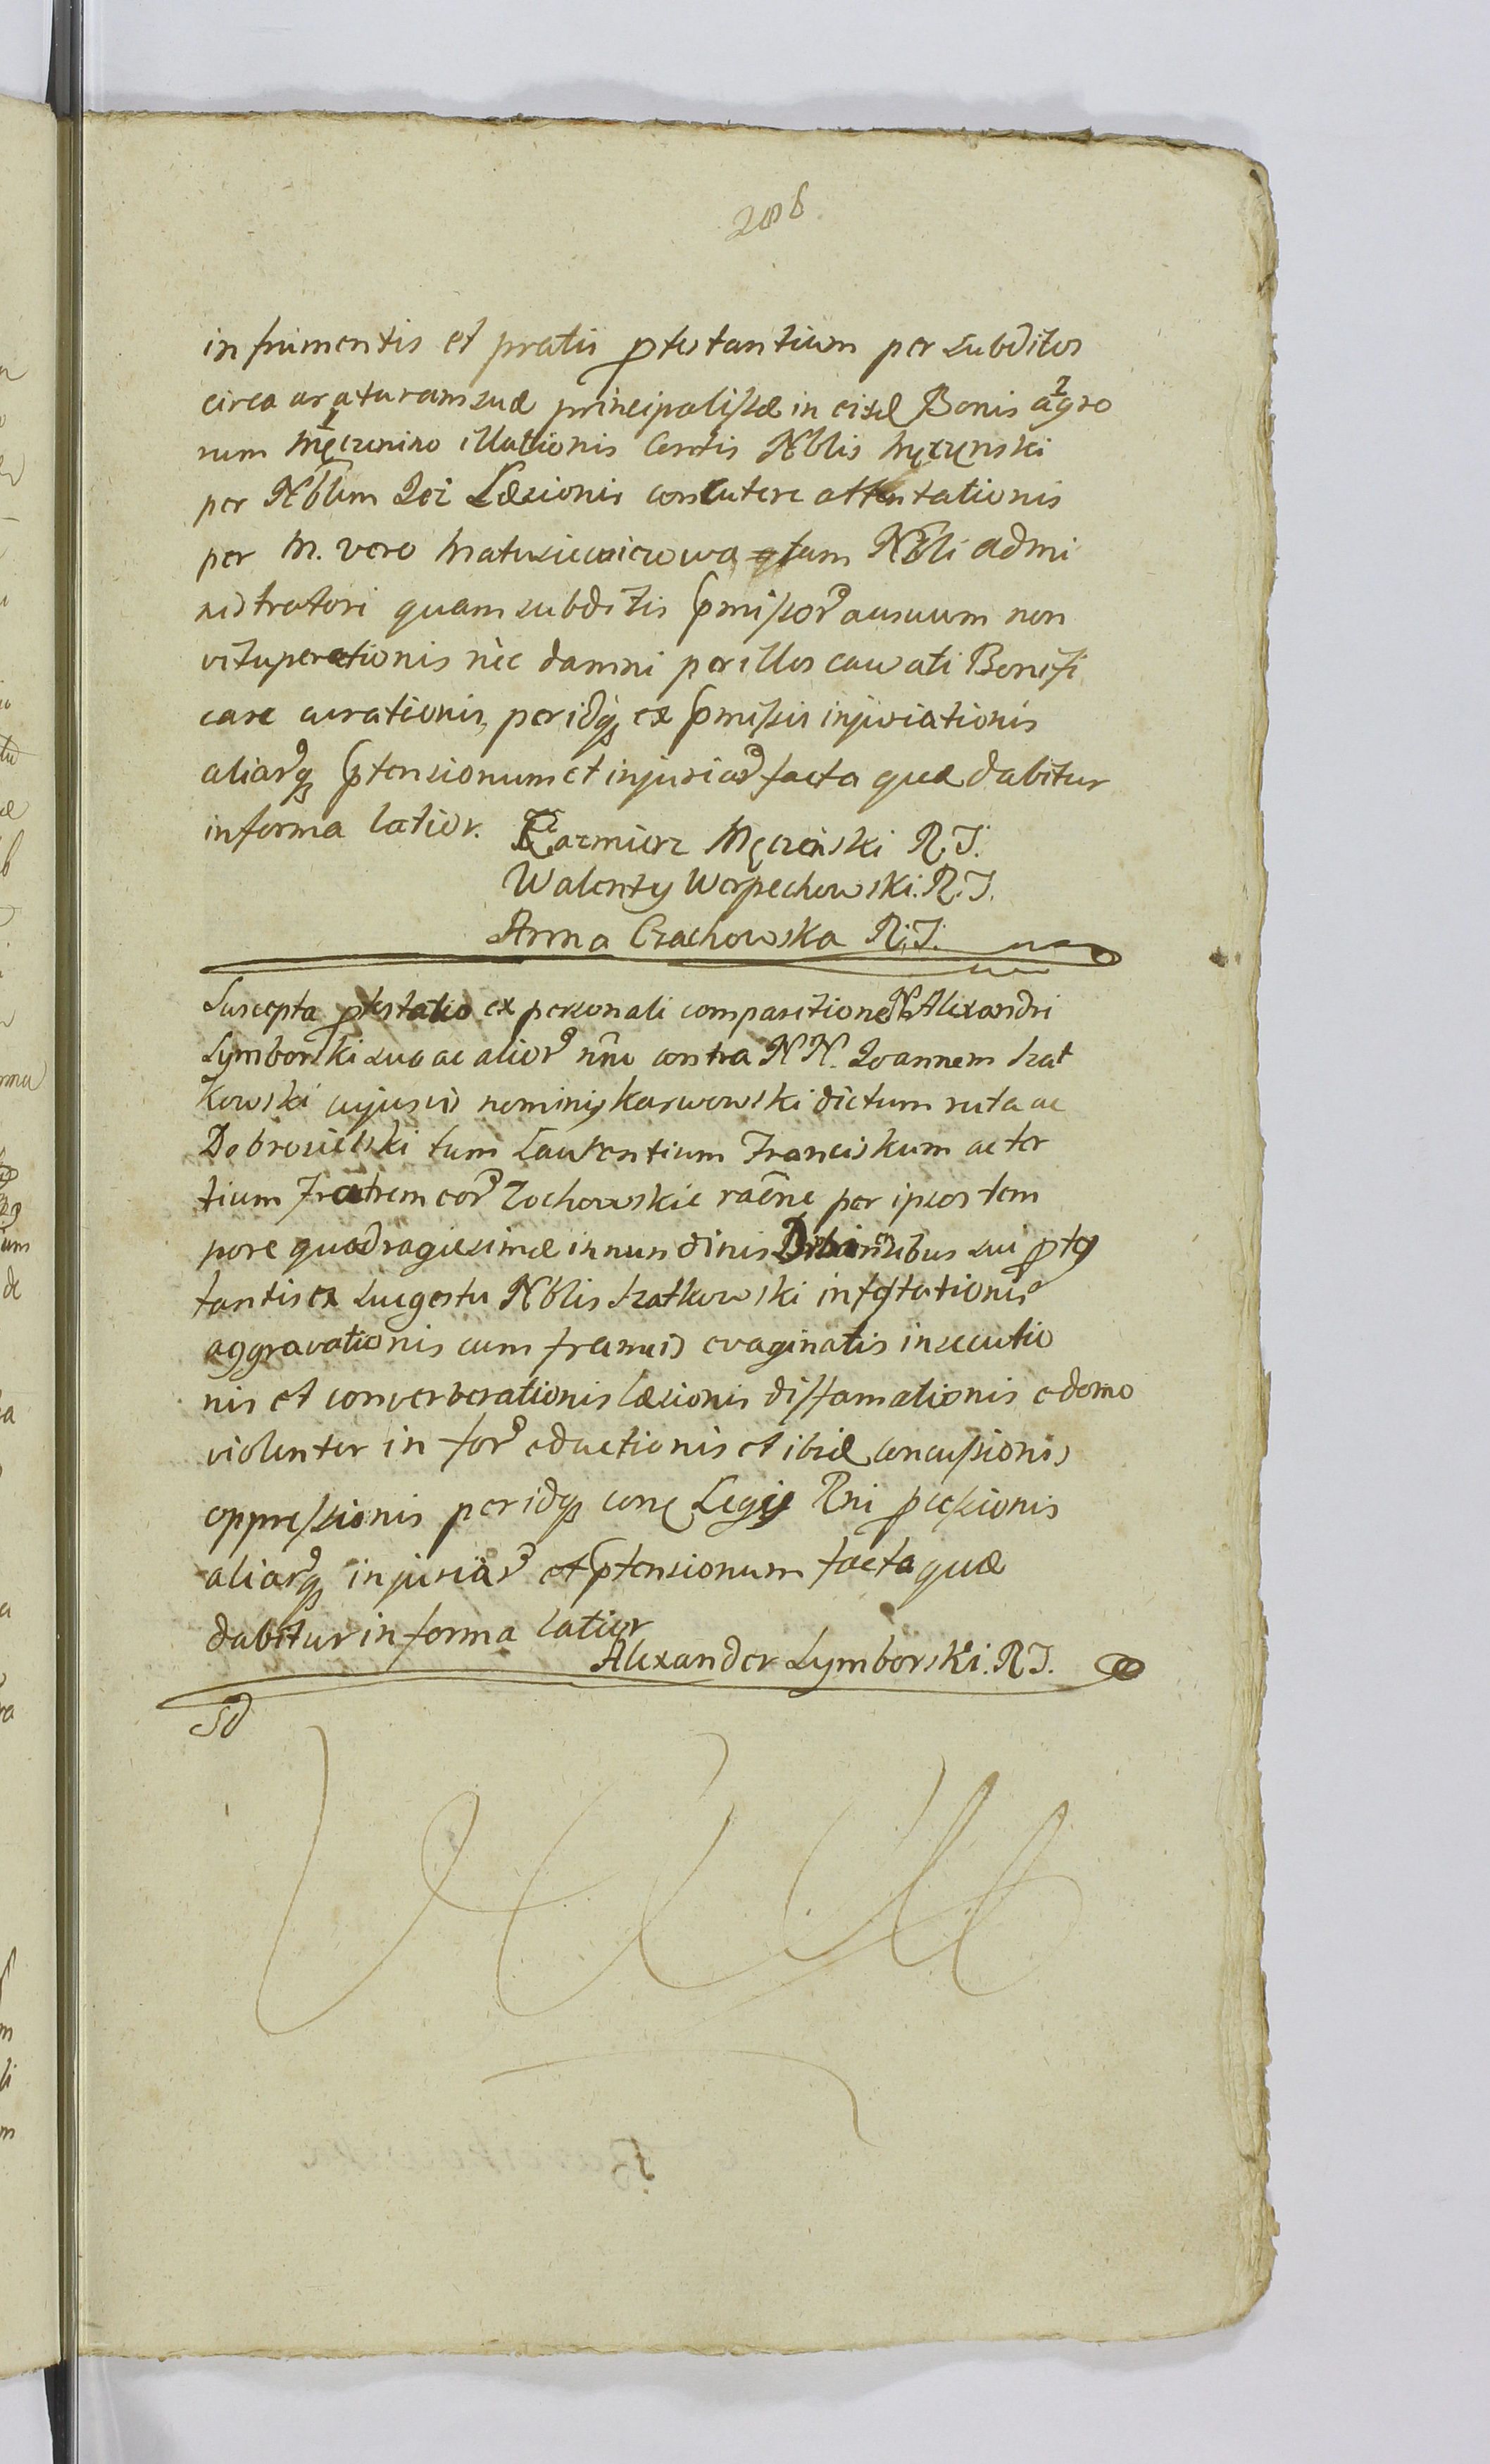 208
in frumentis et pratis ptestantium per subditos
circa araturam suæ principalissæ in eisd Bonis agro
rum Męczenino illationis Centis Nblis Męczenski
per Nblem Læsionis concutere attentationis
per M. vero Matusiewiczowa tam Nbli admi
nistratori quam subditis pmissor ausuum non
vituperationis nec damni per illos causati Bonifi
care curationis, per idq ex pmissis injuriationis
aliarq ptensionum et injuriar facta quæ dabitur
in forma latior.
Kazmierz Męczeński R.J.
Walenty Werpechowski. R.J.
Anna Czachowska R.J.
Suscepta ptestatio ex personali comparitione N. Alexandri
Lymborski suo ac alior nne contra N N. Joannem Szat
kowski cujusvis nominis Karwowski dictum nuta ac
Dobrosielski tum Laurentium Franciskum ac ter
tium Fratrem eor Zochowskie raone per ipsos tem
pore quadragiesimæ in nundinis sui ptes
tantis ex Sugestu Nblis Szatkowski infestationis
aggravationis cum frameis evaginatis insecutio
nis et converberationis læsionis diffamationis e domo
violenter in for eductionis et ibid concussionis
oppressionis per idq Legis Rni pcessionis
aliarq injuriar et ptensionum facta quæ
dabitur in forma latior
Alexander Lymborski. R.J.